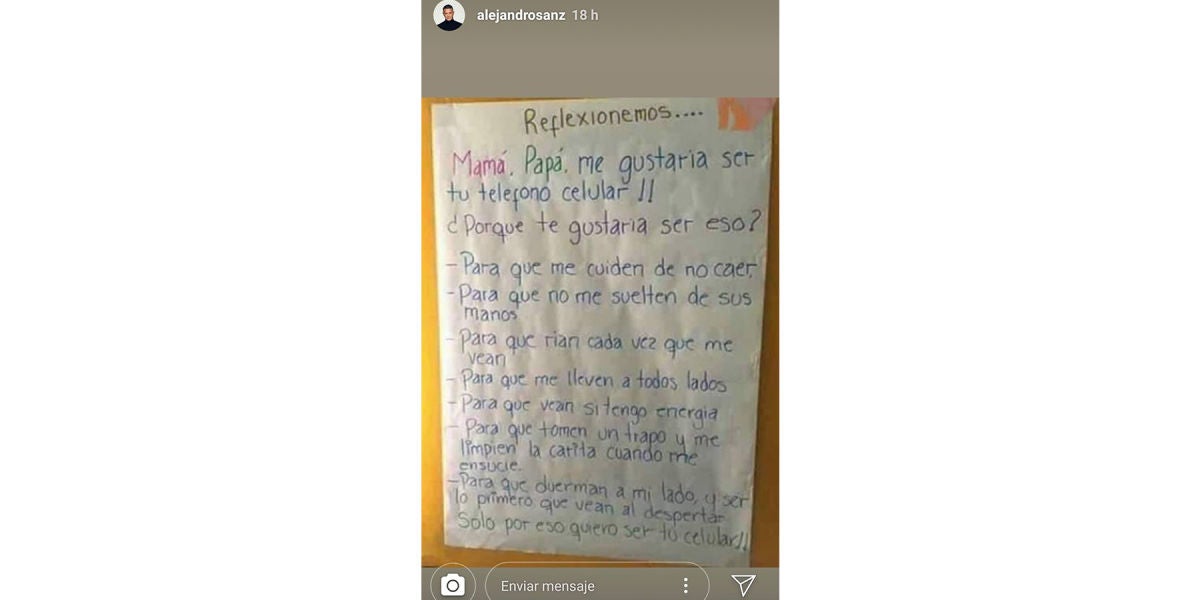 alejandrosanz 18 h
Reflexionemos....
Mamá, Papá, me gustaria ser
tu telefono celular!!
¿Porque te gustaria ser eso?
- Para que me cuiden de no caer.
- Para que no me suelten de sus
manos
- Para que rian cada vez que me
vean
- Para que me lleven a todos lados
- Para que vean si tengo energia
- Para que tomen un trapo y me
limpien la carita cuando me
ensucie.
- Para que duerman a mi lado, y ser
lo primero que vean al despertar
Solo por eso quiero ser tu celular!!
Enviar mensaje